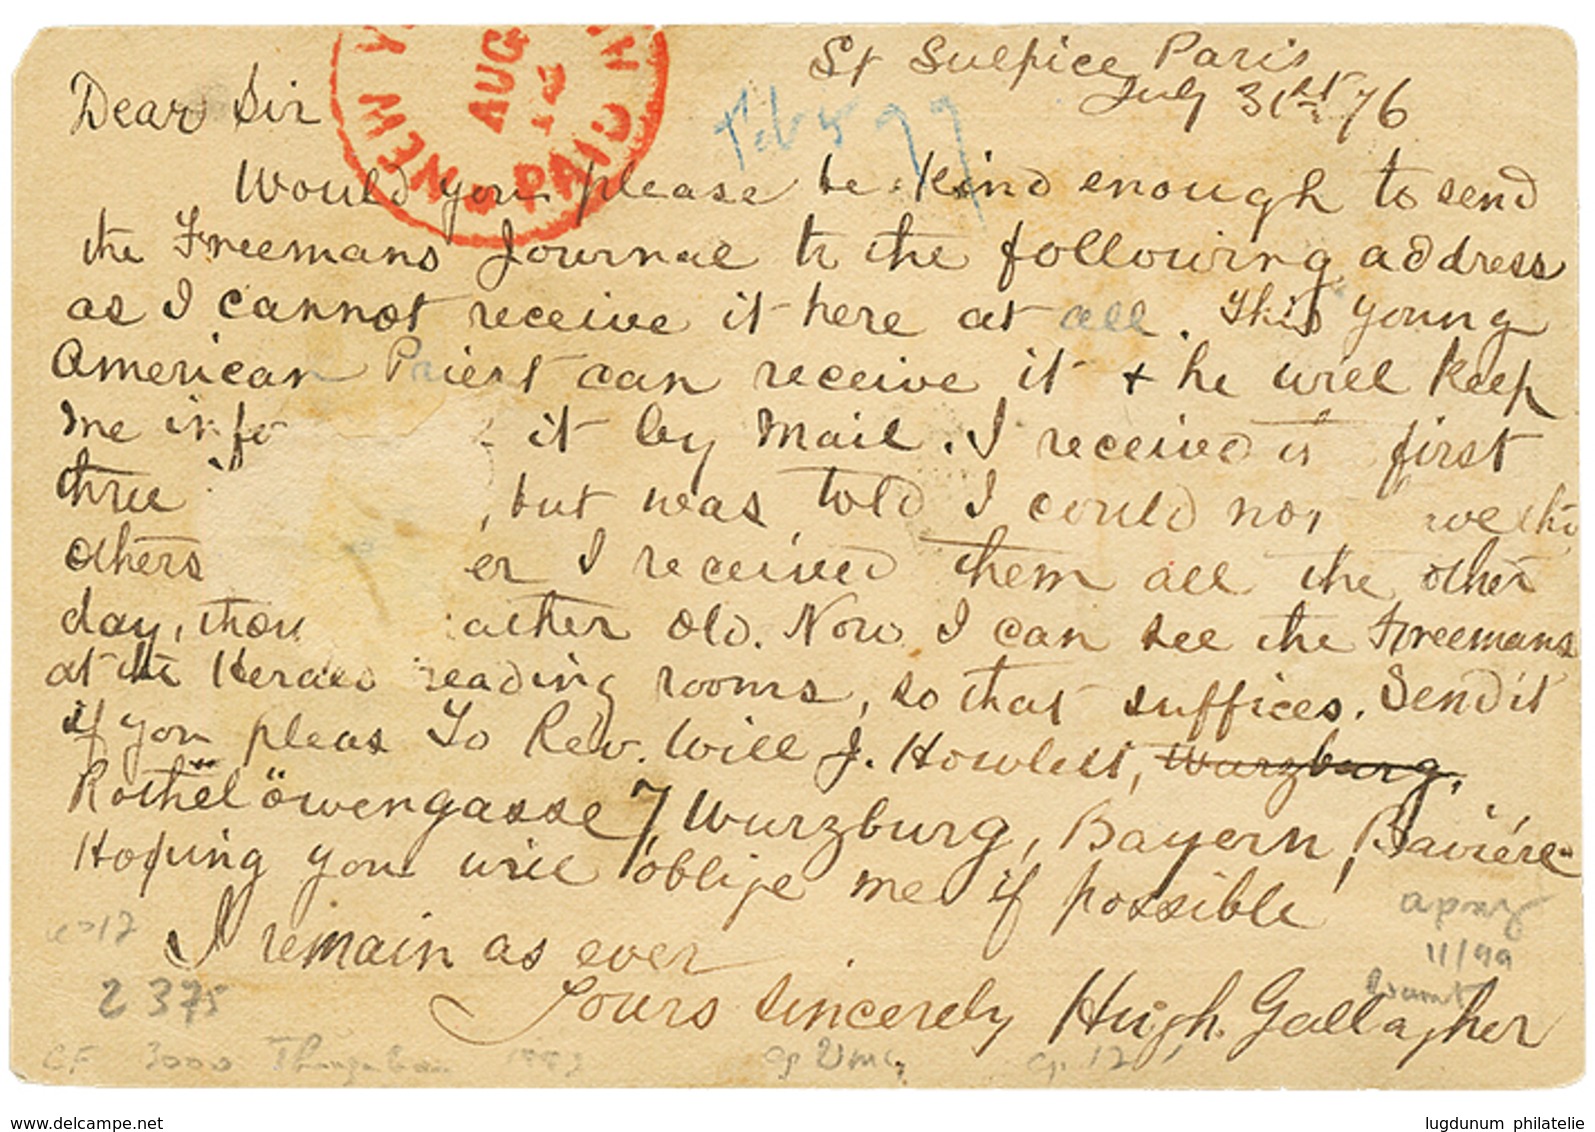 St Sulpice Paris
July 31st 76
NEW Y
AUG
PAID
Feb 5 99
Dear Sir
Would you please be kind enough to send
the Freemans Journal to the following address
as I cannot receive it here at all. This young
American Priest can receive it + he will keep
me info it by Mail. I received it first
three , but was told I could no
others er I received them all the other
day, thou rather old. Now I can see the Freemans
at the Herald reading rooms, so that suffices. Send it
if you pleas To Rev. Will J. Howlett, Wurzburg,
Rothelöwengasse 7, Wurzburg, Bayern, Bavière
Hoping you will oblige me if possible
I remain as ever
Yours Sincerely Hugh Gallagher
11/99
2 375
3000
www.delcampe.net
lugdunum philatelie